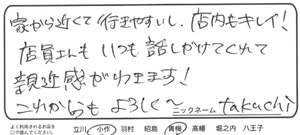 家から近くて行きやすいし、店内もキレイ!
店員さんもいつも話しかけてくれて
親近感がわきます!
これからもよろしく〜
ニックネーム takuchi
よく利用されるお店を○で囲んでください。
立川 小作 羽村 昭島 青梅 高幡 堀之内 八王子